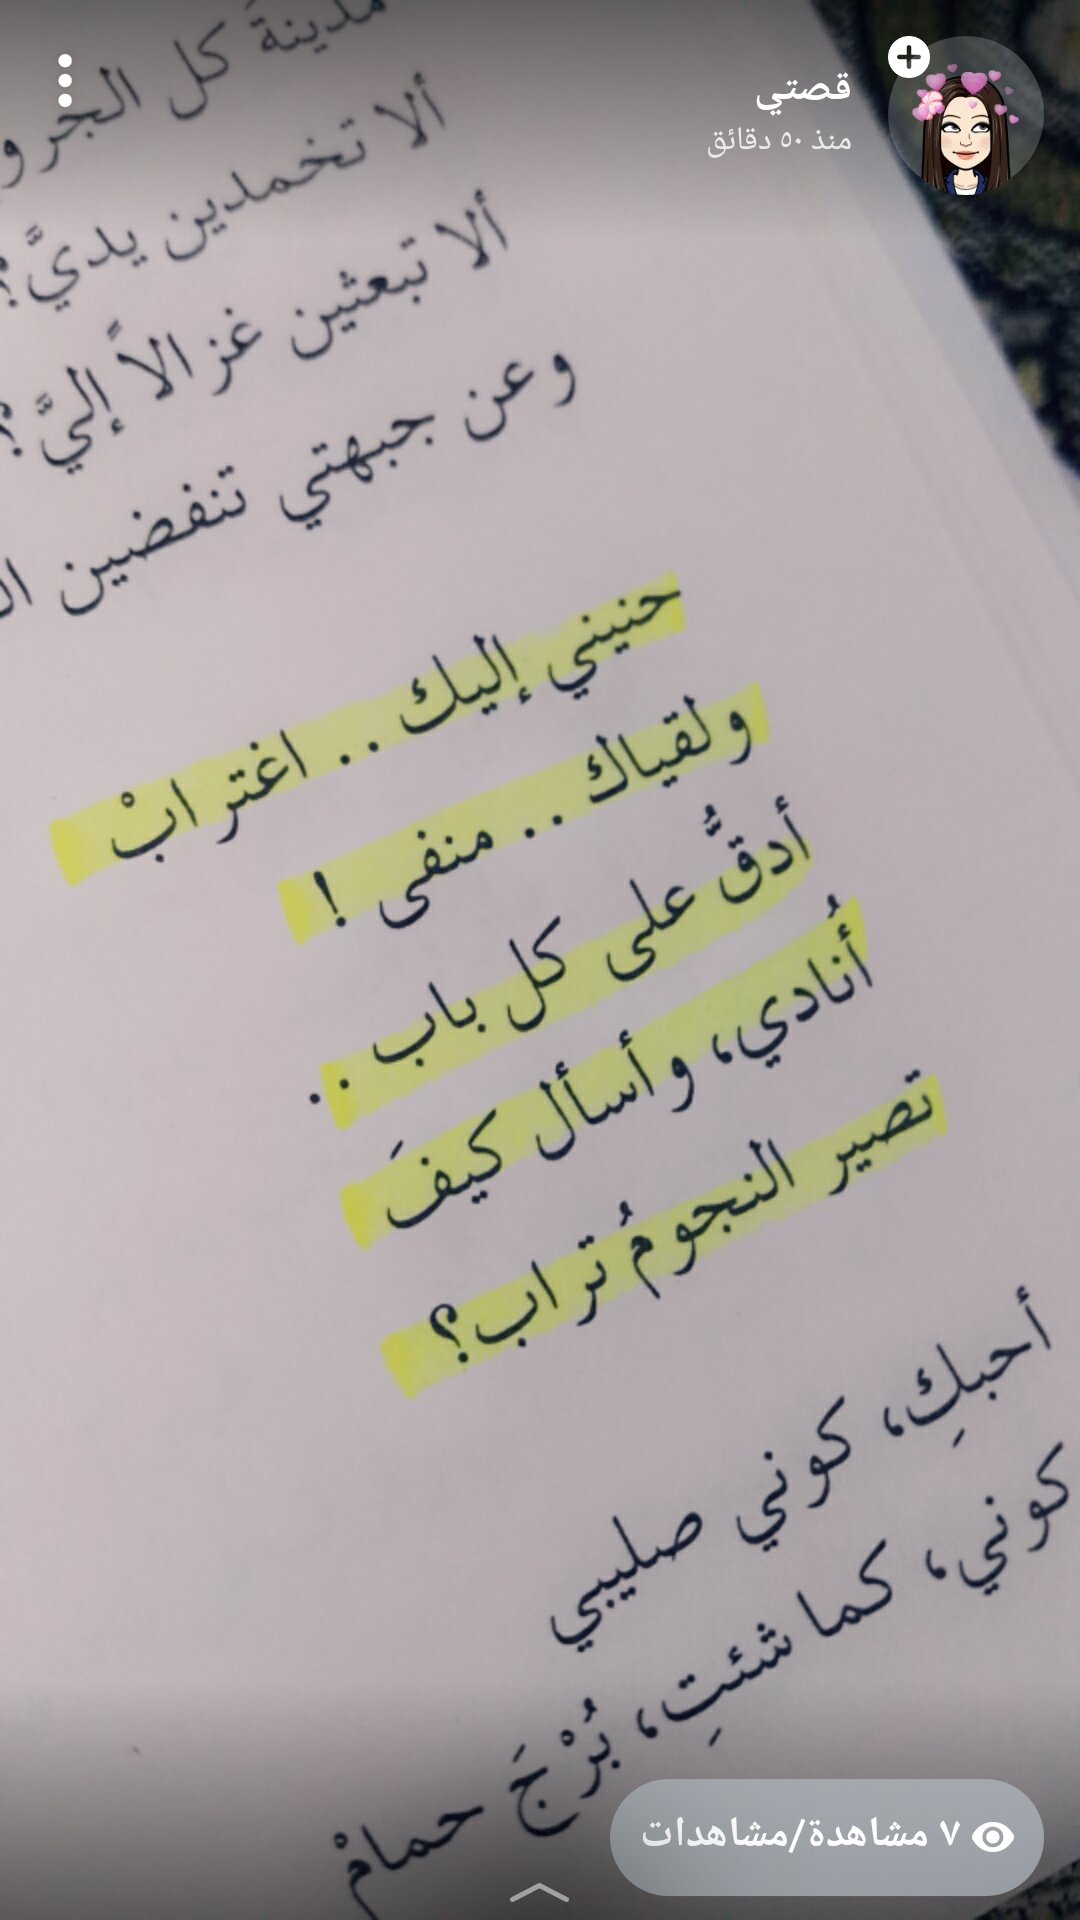 قصتي
منذ ٥٠ دقائق
مدينة كل الجرو
ألا تخمدين يديَّ؟
ألا تبعثين غزالاً إليَّ؟
وعن جبهتي تنفضين
حنيني إليك .. اغترابْ
ولقياك .. منفى !
أدقُّ على كل باب ..
أُنادي، وأسأل كيفَ
تصير النجومُ تراب؟
أحبكِ، كوني صليبي
كوني، كما شئتِ، بُرْجَ حمامْ
٧ مشاهدة/مشاهدات